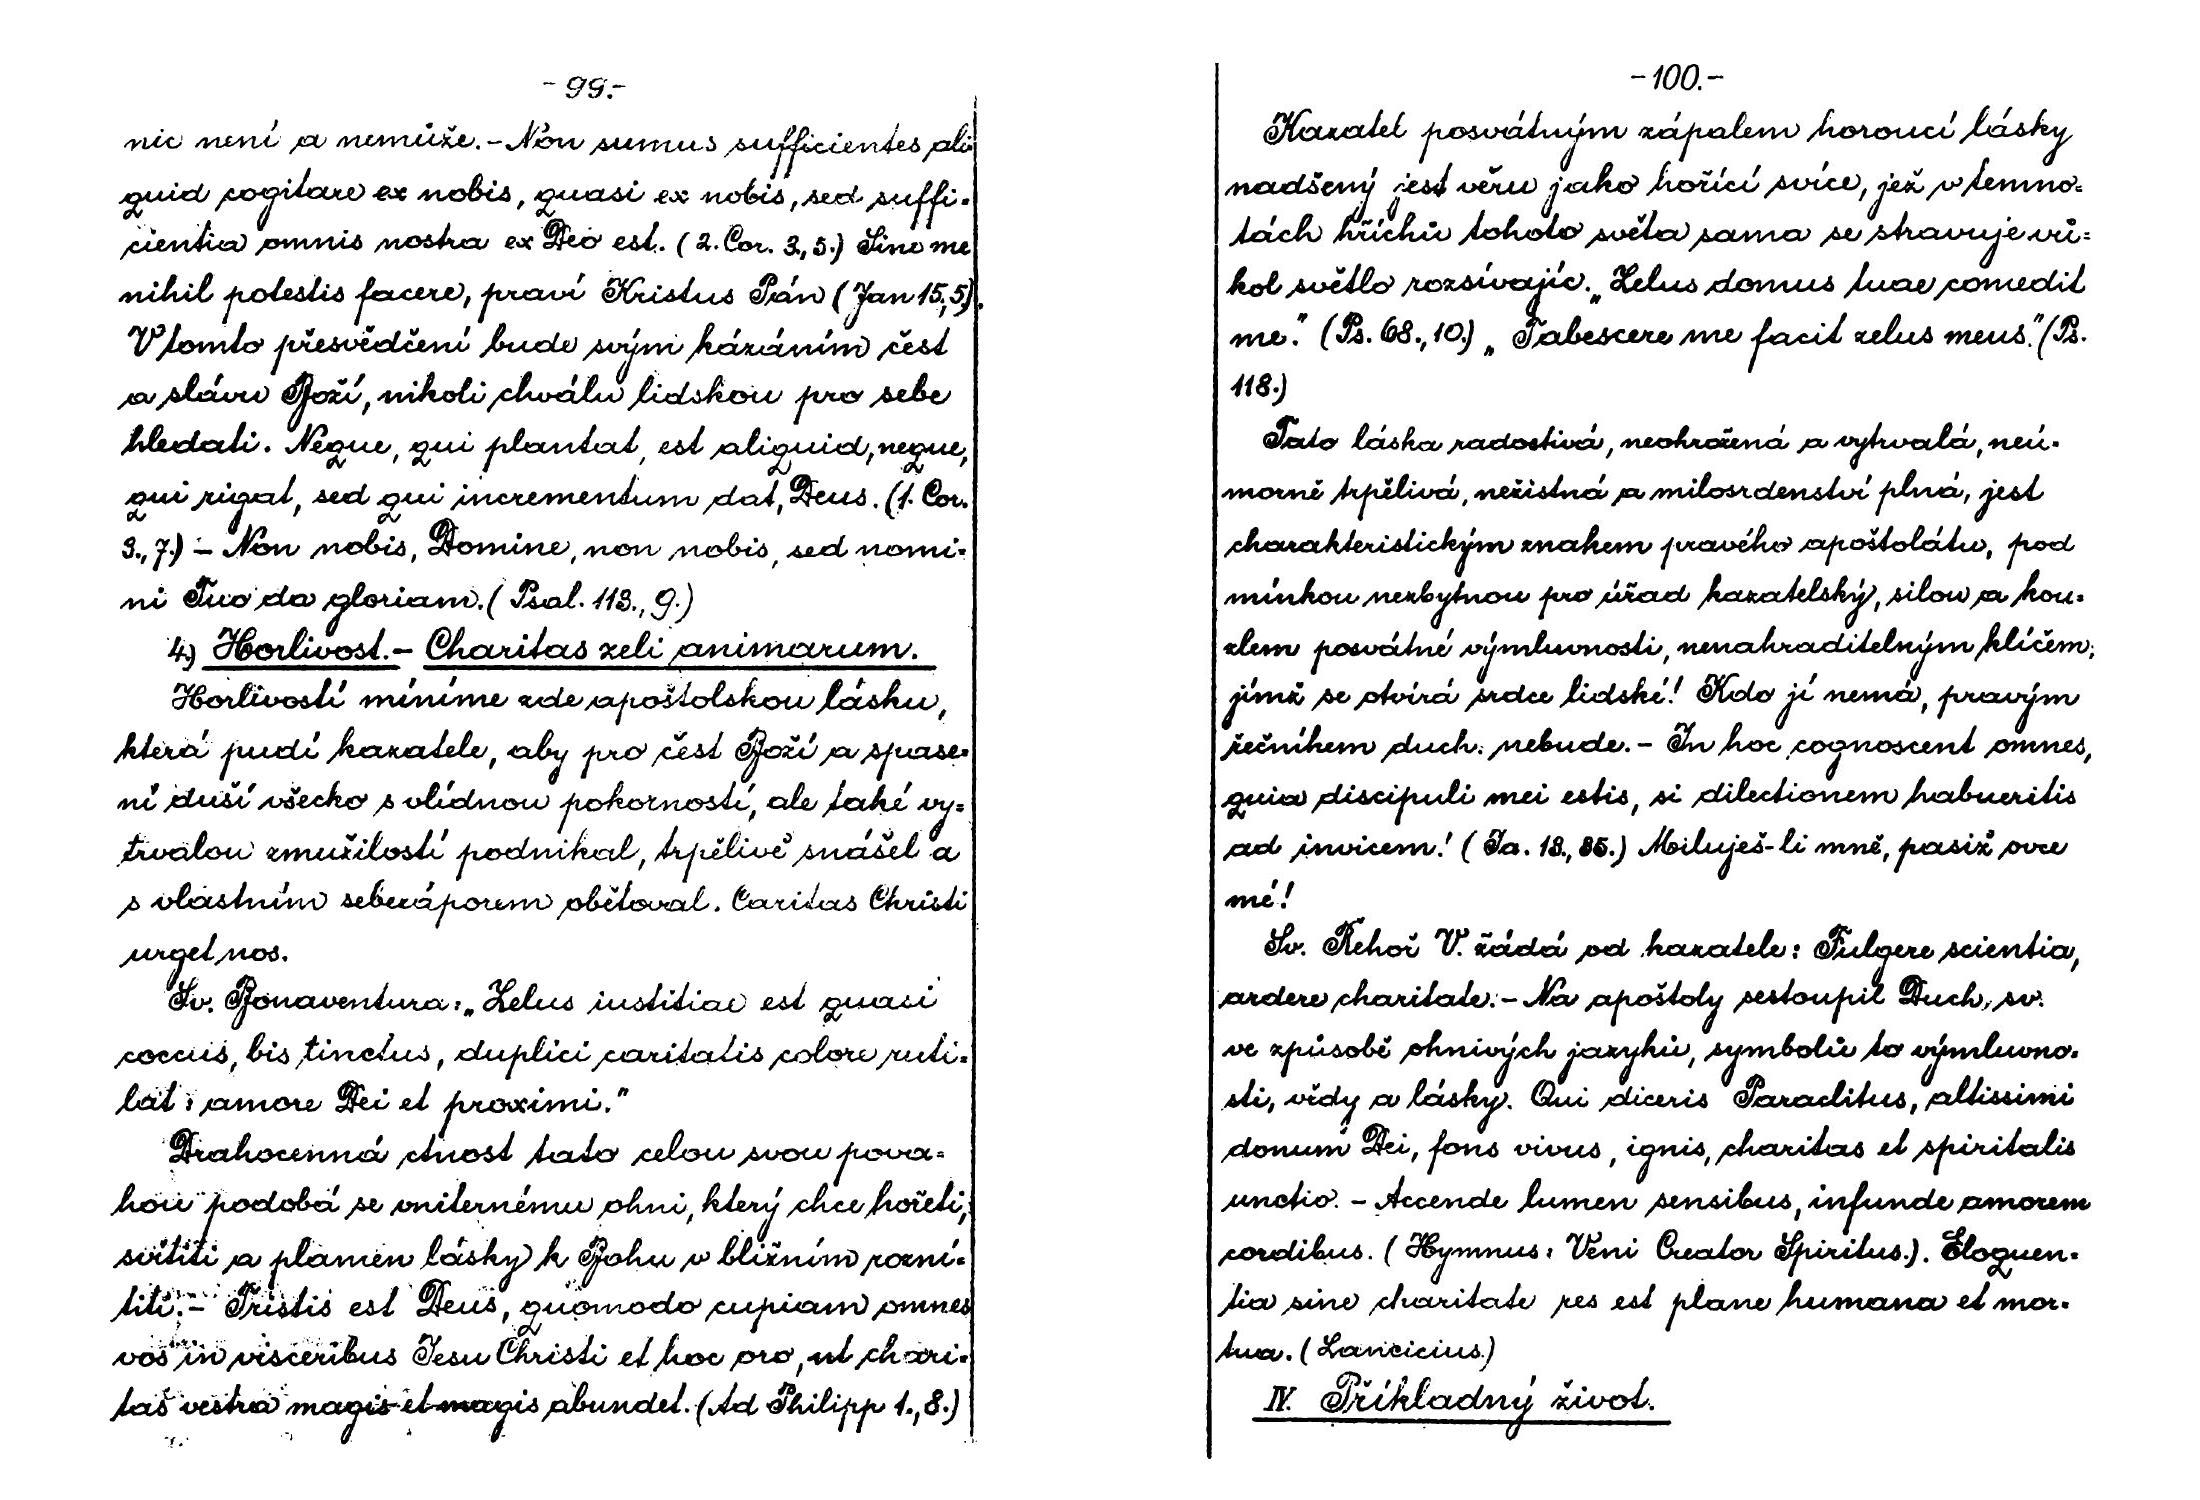 - 99.-
nic není a nemůže.- Non sumus sufficientes ali
quid cogitare ex nobis, quasi ex nobis, sed suffi-
cientia omnis nostra ex Deo est. (2. Cor. 3., 5.) Sine me
nihil potestis facere, praví Kristus Pán (Jan 15, 5).
V tomto přesvědčení bude svým kázáním čest
a slávu Boží, nikoli chválu lidskou pro sebe
hledati. Neque, qui plantat, est aliquid, neque,
qui rigat, sed qui incrementum dat, Deus. (1. Cor.
3., 7.) - Non nobis, Domine, non nobis, sed nomi-
ni Tuo da gloriam. (Psal. 113., 9.)
4.) Horlivost.- Charitas zeli animarum.
Horlivostí míníme zde apoštolskou lásku,
která pudí kazatele, aby pro čest Boží a spase-
ní duší všecko s vlídnou pokorností, ale také vy=
trvalou zmužilostí podnikal, trpělivě snášel a
s vlastním sebezáporem obětoval. Caritas Christi
urget nos.
Sv. Bonaventura: „Zelus iustitiae est quasi
coccus, bis tinctus, duplici caritatis colore ruti-
lat: amore Dei et proximi."
Drahocenná ctnost tato celou svou pova=
hou podobá se vniternému ohni, který chce hořeti,
svítiti a plamen lásky k Bohu v bližním rozní-
titi.- Tristis est Deus, quomodo cupiam omnes
vos in visceribus Jesu Christi et hoc oro, ut chari-
tas vestra magis et magis abundet. (Ad Philipp 1., 8.)
- 100.-
Kazatel posvátným zápalem horoucí lásky
nadšený jest věru jako hořící svíce, jež v temno=
tách hříchů tohoto světa sama se stravuje vů=
kol světlo rozsívajíc. „Zelus domus tuae comedit
me." (Ps. 68., 10.) „Tabescere me facit zelus meus." (Ps.
118.)
Tato láska radostivá, neohrožená a vytrvalá, neú-
morně trpělivá, nezištná a milosrdenství plná, jest
charakteristickým znakem pravého apoštolátu, pod
mínkou nezbytnou pro úřad kazatelský, silou a kou-
zlem posvátné výmluvnosti, nenahraditelným klíčem,
jímž se otvírá srdce lidské! Kdo jí nemá, pravým
řečníkem duch. nebude.- In hoc cognoscent omnes,
quia discipuli mei estis, si dilectionem habueritis
ad invicem! (Ja. 13., 35.) Miluješ-li mně, pasiž ovce
mé!
Sv. Řehoř V. žádá od kazatele: Fulgere scientia,
ardere charitate.- Na apoštoly sestoupil Duch sv.
ve způsobě ohnivých jazyků, symbolů to výmluvno-
sti, vědy a lásky. Qui diceris Paraclitus, altissimi
donum Dei, fons vivus, ignis, charitas et spiritalis
unctio. - Accende lumen sensibus, infunde amorem
cordibus. (Hymnus: Veni Creator Spiritus.). Eloquen-
tia sine charitate res est plane humana et mor-
tua. (Lancicius)
IV. Příkladný život.